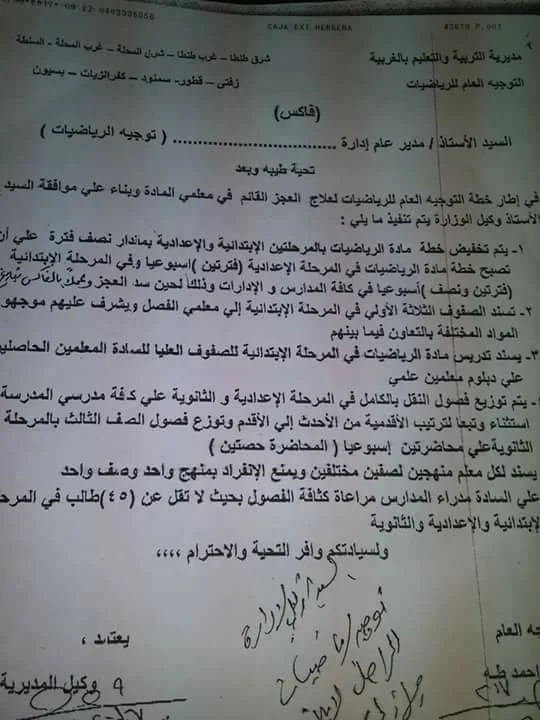 CAJA EXT HERRERA #3670 P.001
مديرية التربية والتعليم بالغربية
شرق طنطا – غرب طنطا – شرق المحلة – غرب المحلة - السنطة
التوجيه العام للرياضيات
زفتى – قطور- سمنود – كفرالزيات – بسيون
(فاكس)
السيد الأستاذ / مدير عام إدارة ................................ ( توجيه الرياضيات )
تحية طيبه وبعد
في إطار خطة التوجيه العام للرياضيات لعلاج العجز القائم في معلمي المادة وبناء علي موافقة السيد
الأستاذ وكيل الوزارة يتم تنفيذ ما يلي :
١- يتم تخفيض خطة مادة الرياضيات بالمرحلتين الإبتدائية والإعدادية بماندار نصف فترة علي أن
تصبح خطة مادة الرياضيات في المرحلة الإعدادية (فترتين )إسبوعيا وفي المرحلة الإبتدائية
(فترتين ونصف )أسبوعيا في كافة المدارس و الإدارات وذلك لحين سد العجز
٢- تسند الصفوف الثلاثة الأولي في المرحلة الإبتدائية إلي معلمي الفصل ويشرف عليهم موجهو
المواد المختلفة بالتعاون فيما بينهم
٣- يسند تدريس مادة الرياضيات في المرحلة الإبتدائية للصفوف العليا للسادة المعلمين الحاصلين
علي دبلوم معلمين علمي
- يتم توزيع فصول النقل بالكامل في المرحلة الإعدادية و الثانوية علي كافة مدرسي المدرسة
استثناء وتبعا لترتيب الأقدمية من الأحدث إلي الأقدم وتوزع فصول الصف الثالث بالمرحلة
الثانويةعلي محاضرتين إسبوعيا ( المحاضرة حصتين )
يسند لكل معلم منهجين لصفين مختلفين ويمنع الإنفراد بمنهج واحد وصف واحد
علي السادة مدراء المدارس مراعاة كثافة الفصول بحيث لا تقل عن (٤٥)طالب في المرحلة
الإبتدائية والإعدادية والثانوية
ولسيادتكم وافر التحية والاحترام ،،،،
توجيه رياضيات
يعتمد ،
وكيل المديرية
احمد طه